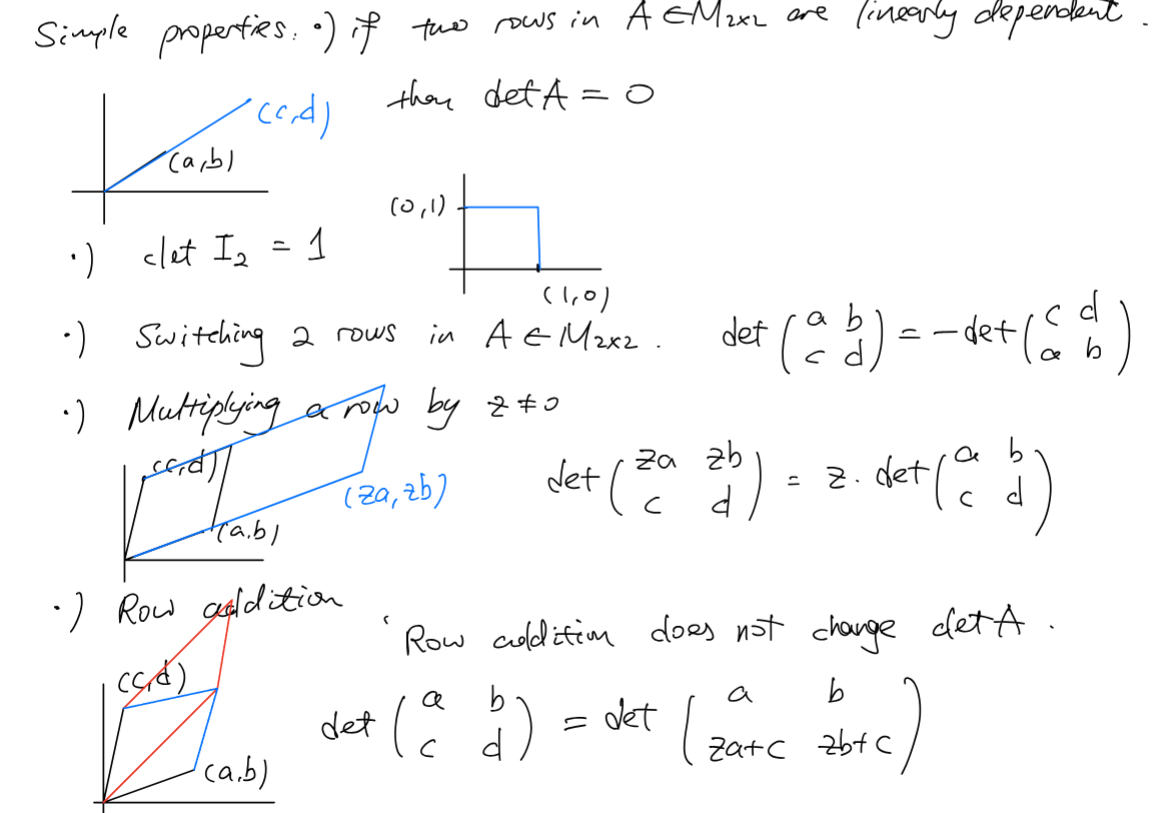 Simple properties. •) if two rows in A ∈ M₂ₓ₂ are linearly dependent.
then det A = 0
(c,d)
(a,b)
(0,1)
(1,0)
•) det I₂ = 1
•) Switching 2 rows in A ∈ M₂ₓ₂. det (a b; c d) = -det (c d; a b)
•) Multiplying a row by z ≠ 0
(c,d)
(za, zb)
(a,b)
det (za zb; c d) = z. det (a b; c d)
•) Row addition
Row addition does not change det A.
(c,d)
(a,b)
det (a b; c d) = det (a b; za+c zb+c)